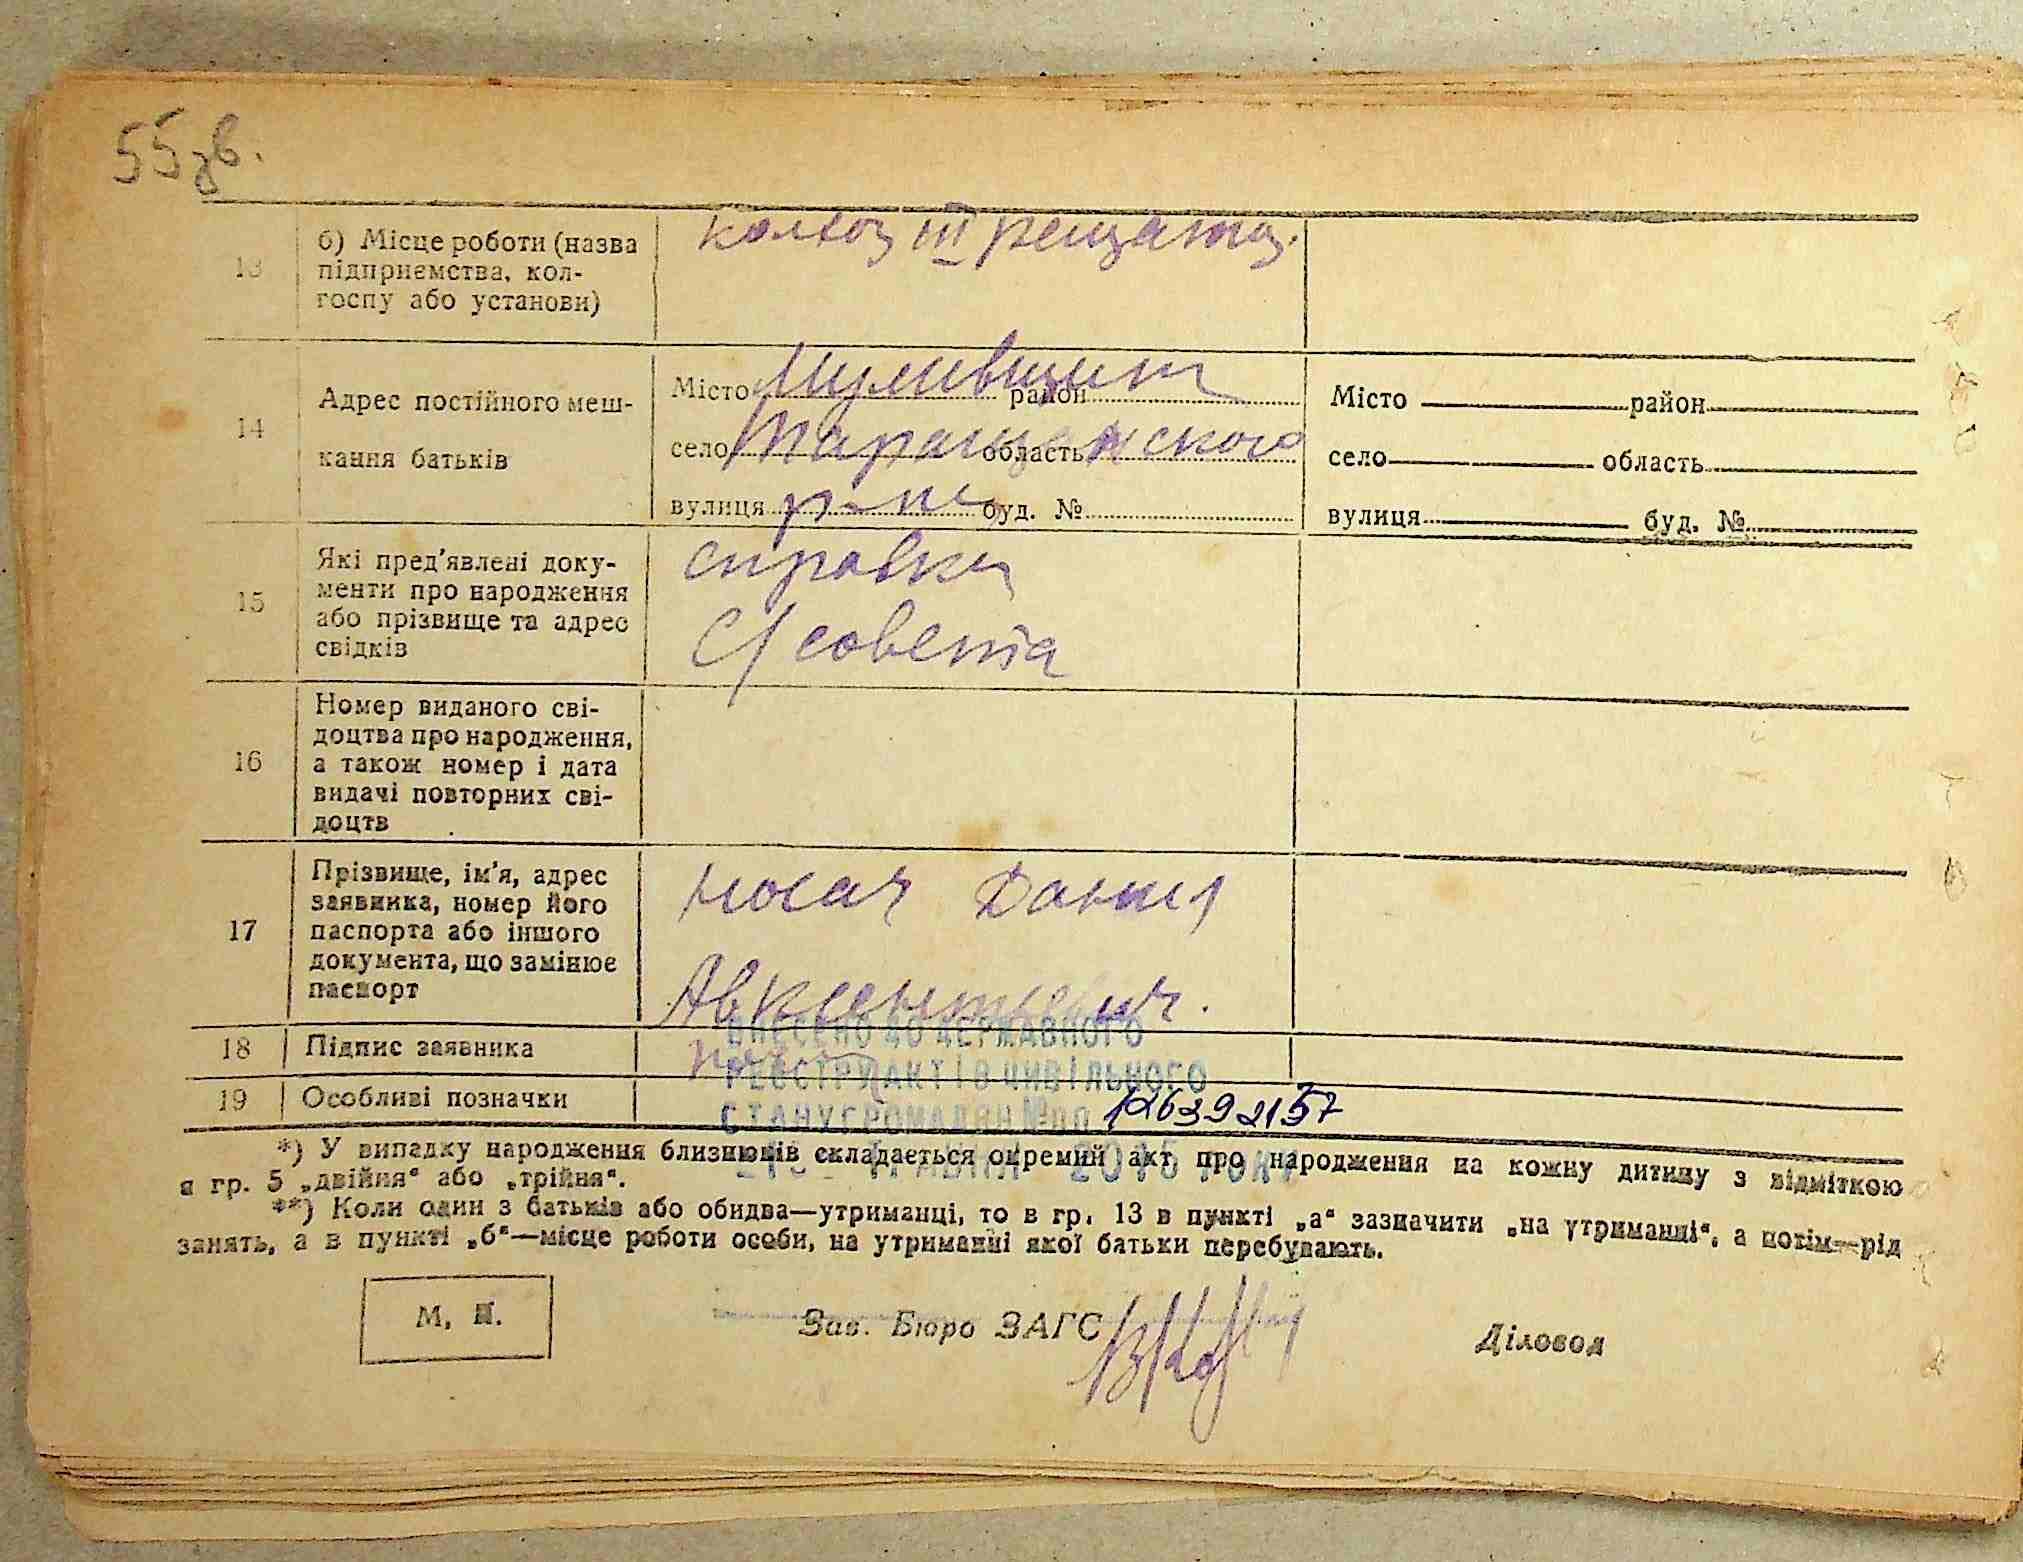 55зв.
13
б) Місце роботи (назва
підприємства, кол-
госпу або установи)
колхоз III
14
Адрес постійного меш-
кання батьків
Місто район
село Таращанского область
вулиця р-на буд. №
Місто район
село область
вулиця буд. №
15
Які пред'явлені доку-
менти про народження
або прізвище та адрес
свідків
справка
С/совета
16
Номер виданого сві-
доцтва про народження,
а також номер і дата
видачі повторних сві-
доцтв
17
Прізвище, ім'я, адрес
заявника, номер його
паспорта або іншого
документа, що замінює
паспорт
Носач Данил
Авксентьевич.
18
Підпис заявника
19
Особливі позначки
ВНЕСЕНО ДО ДЕРЖАВНОГО
РЕЄСТРУ АКТІВ ЦИВІЛЬНОГО
СТАНУ ГРОМАДЯН № пп 126392157
ТРАВНЯ РОКУ
*) У випадку народження близнюків складається окремий акт про народження на кожну дитину з відміткою
в гр. 5 „двійня“ або „трійня“.
**) Коли один з батьків або обидва—утриманці, то в гр. 13 в пункті „а“ зазначити „на утриманні“, а потім—рід
занять, а в пункті „б“—місце роботи особи, на утриманні якої батьки перебувають.
М. П.
Зав. Бюро ЗАГС
Діловод